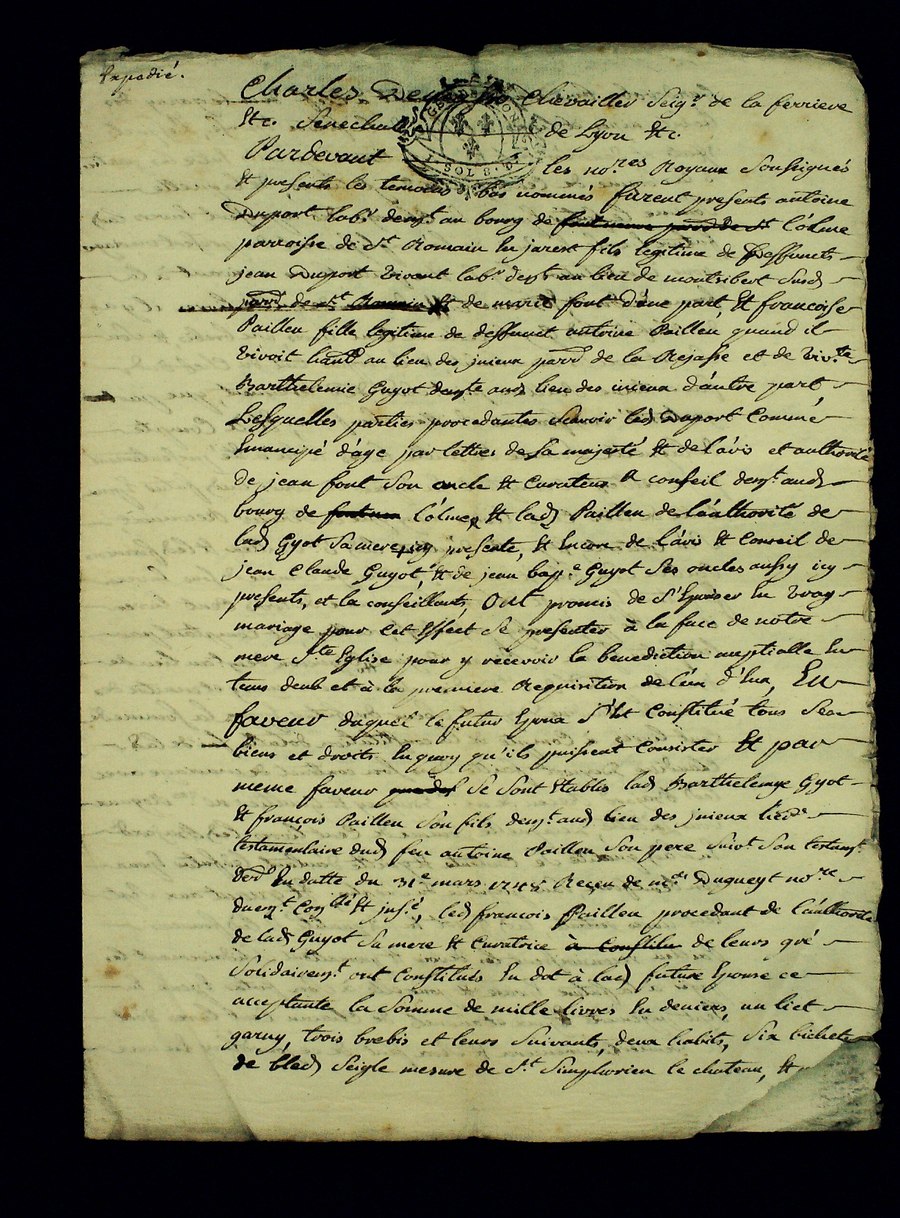 Expedié.
Charles Chevallier Seigr. de la ferriere
&tc. Senechal de Lyon &tc.
GEN. DE LYON
1. SOL 8. D.
Pardevant les nores Royaux Soussignés
Et presents les temoins bas nommés furent presents antoine
Duport labr. demt. au bourg de l'olme
parroisse de St. Romain En jarest fils legitime de Deffunts
jean Duport vivant labr. demt. au lieu de montribert Susd
parr de St. Romain Et de marie font d'une part, Et francoise
Paillen fille legitime de deffunct antoine Paillen quand il
vivoit habt. au lieu des jnieux parr de la Rejasse et de vivte
Barthelemie Guyot demte aud lieu des inieux d'autre part
Lesquelles parties procedantes Scavoir led Duport Comme
Emancipé d'age par lettres de Sa majesté Et de l'avis et authorité
de jean font Son oncle Et Curateur a conseil demt. aud
bourg de l'olme, Et lad Paillen de l'authorité de
lad Gyot Sa mere, jcy presente, Et Encore de l'avis Et Conseil de
jean Claude Guyot, Et de jean bapte Guyot Ses oncles aussy icy
presents, et la conseillants, Ont promis de S'Epouser En vray
mariage pour Cet Effect Se presenter à la face de notre
mere Ste Eglise pour y recevoir la benediction nuptialle En
tems deub et à la premiere Requisition de l'un d'Eux, En
faveur duquel le futur Epoux S'Est Constitué tous Ses
biens et droits En quoy qu'ils puissent Consister Et par
meme faveur Se Sont Etablis lad Barthelemye Gyot
Et françois Paillen Son fils demt. aud lieu des jnieux
testamentaire dud feu antoine Paillen Son pere Suivt. Son testamt.
En datte du 31e mars Receu de me. Dugueyt nore
demt. led françois Paillen procedant de l'authorité
de lad Guyot Sa mere Et Curatrice à Constitu de leurs gré
Solidairemt. ont Constitués En dot à lad future Epouse ce
acceptante la Somme de mille livres En deniers, un liet
garny, trois brebis et leurs Suivants, deux habits, Six bichets
de bled Seigle mesure de St. Simphorien le chateau, Et